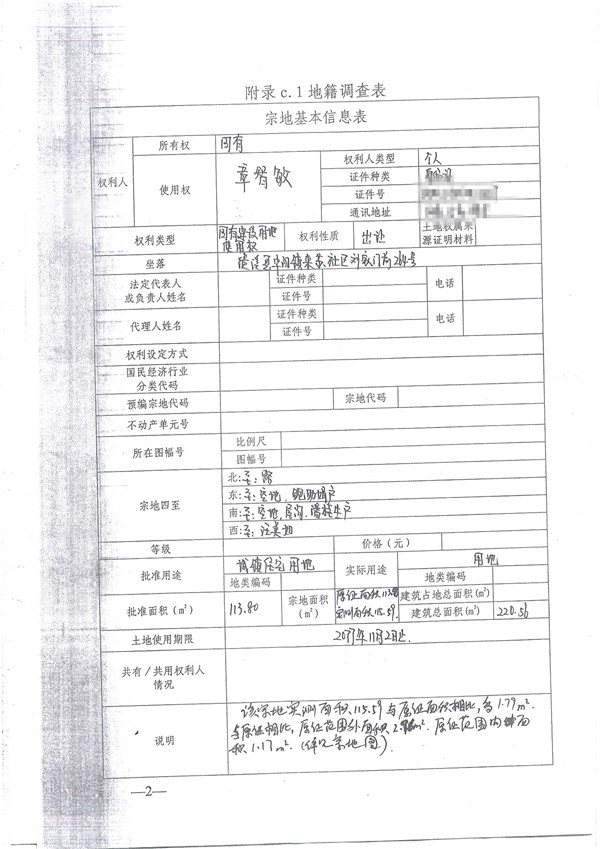 附录 c.1 地籍调查表
宗地基本信息表
权利人 所有权 国有
使用权 章智敏 权利人类型 个人
证件种类
证件号
通讯地址
权利类型 国有建设用地使用权 权利性质 出让 土地权属来源证明材料
坐落
法定代表人或负责人姓名 证件种类 电话
证件号
代理人姓名 证件种类 电话
证件号
权利设定方式
国民经济行业分类代码
预编宗地代码 宗地代码
不动产单元号
所在图幅号 比例尺
图幅号
宗地四至 北:至:路
东:至:空地、鲍助娟户
南:至:空地
西:至:汪美
等级 价格（元）
批准用途 城镇住宅用地 实际用途 用地
地类编码 地类编码
批准面积（m²） 113.80 宗地面积（m²） 原证面积113.80 建筑占地总面积（m²）
实测面积115.59 建筑总面积（m²） 220.56
土地使用期限 止
共有/共用权利人情况
说明 该宗地实测面积115.59与原证面积相比，多1.79m².
与原证相比，原证范围外面积 m². 原证范围内 面
积1.17m².(详见宗地图)
—2—